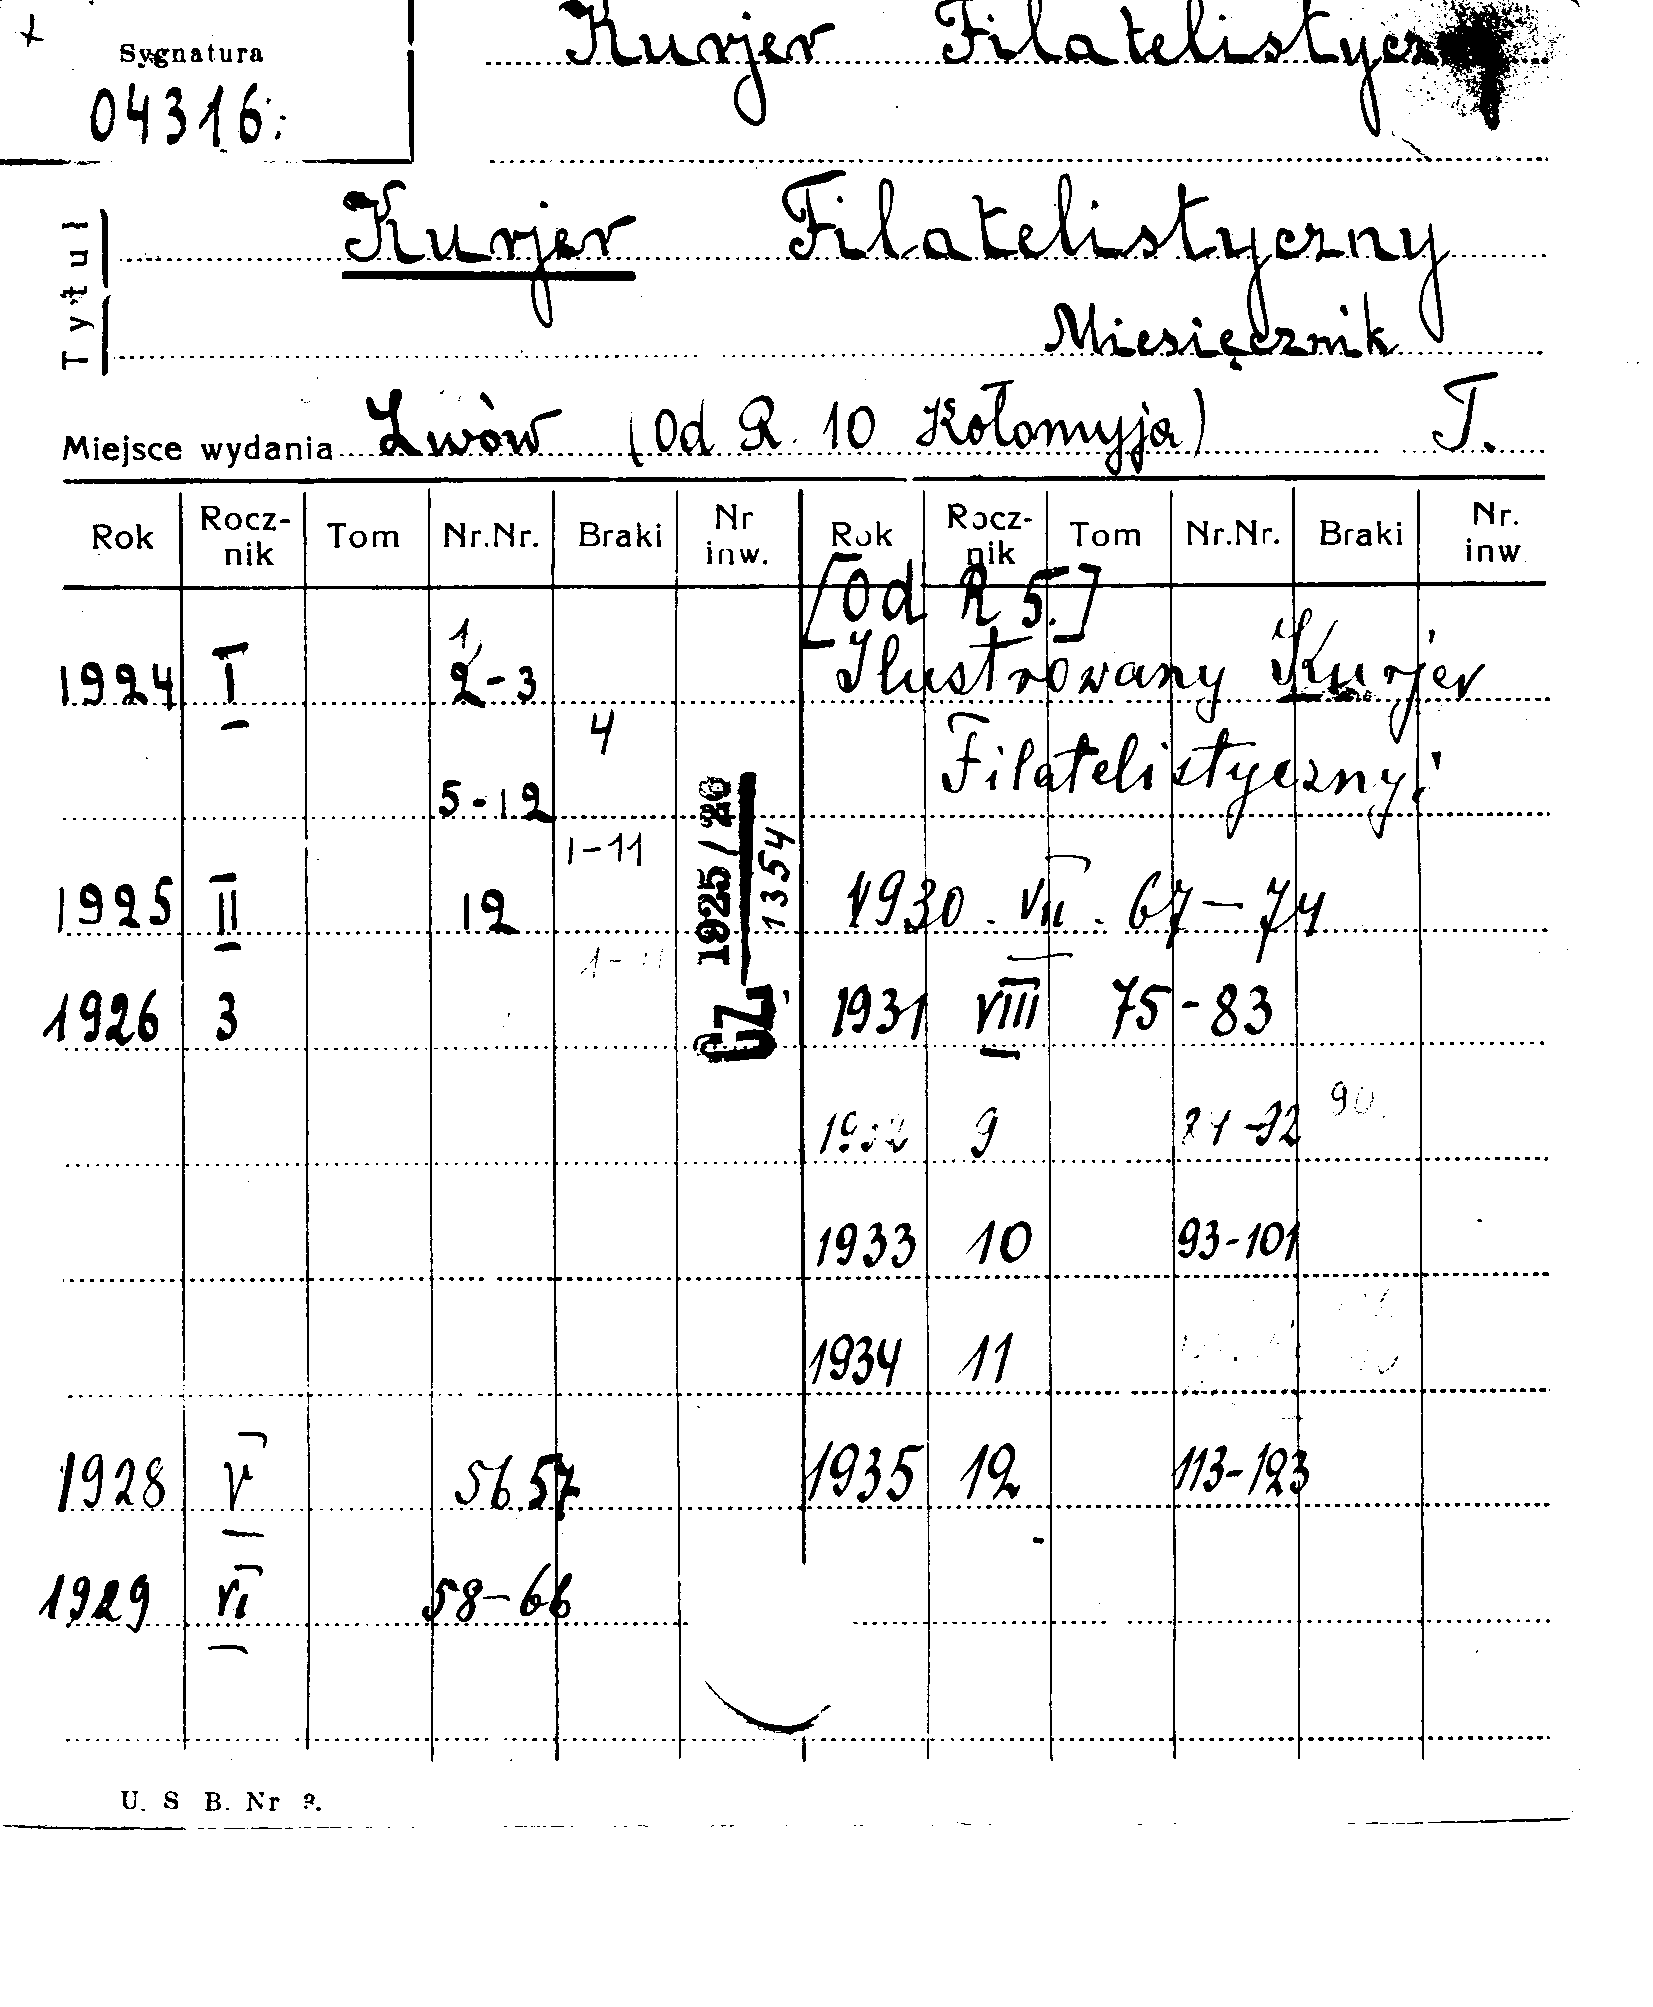 Sygnatura
04316.
Kurjer Filatelistyczny
Tytuł
Kurjer Filatelistyczny
Miesięcznik
Miejsce wydania Lwów (Od R. 10 Kołomyja) T.
Rok Rocz-nik Tom Nr.Nr. Braki Nr inw. Rok Rocz-nik Tom Nr.Nr. Braki Nr. inw
[Od R 5.]
Ilustrowany Kurjer
Filatelistyczny.
1924 I 1, 2-3
4
5-12
1-11
1925 II 12
1-11
1926 3
CZ 1925/26
1354
1928 V 56.57
1929 VI 58-66
1930. VII. 67-74
1931 VIII 75-83
1932 9 84-92 90.
1933 10 93-101
1934 11
1935 12 113-123
U. S B. Nr